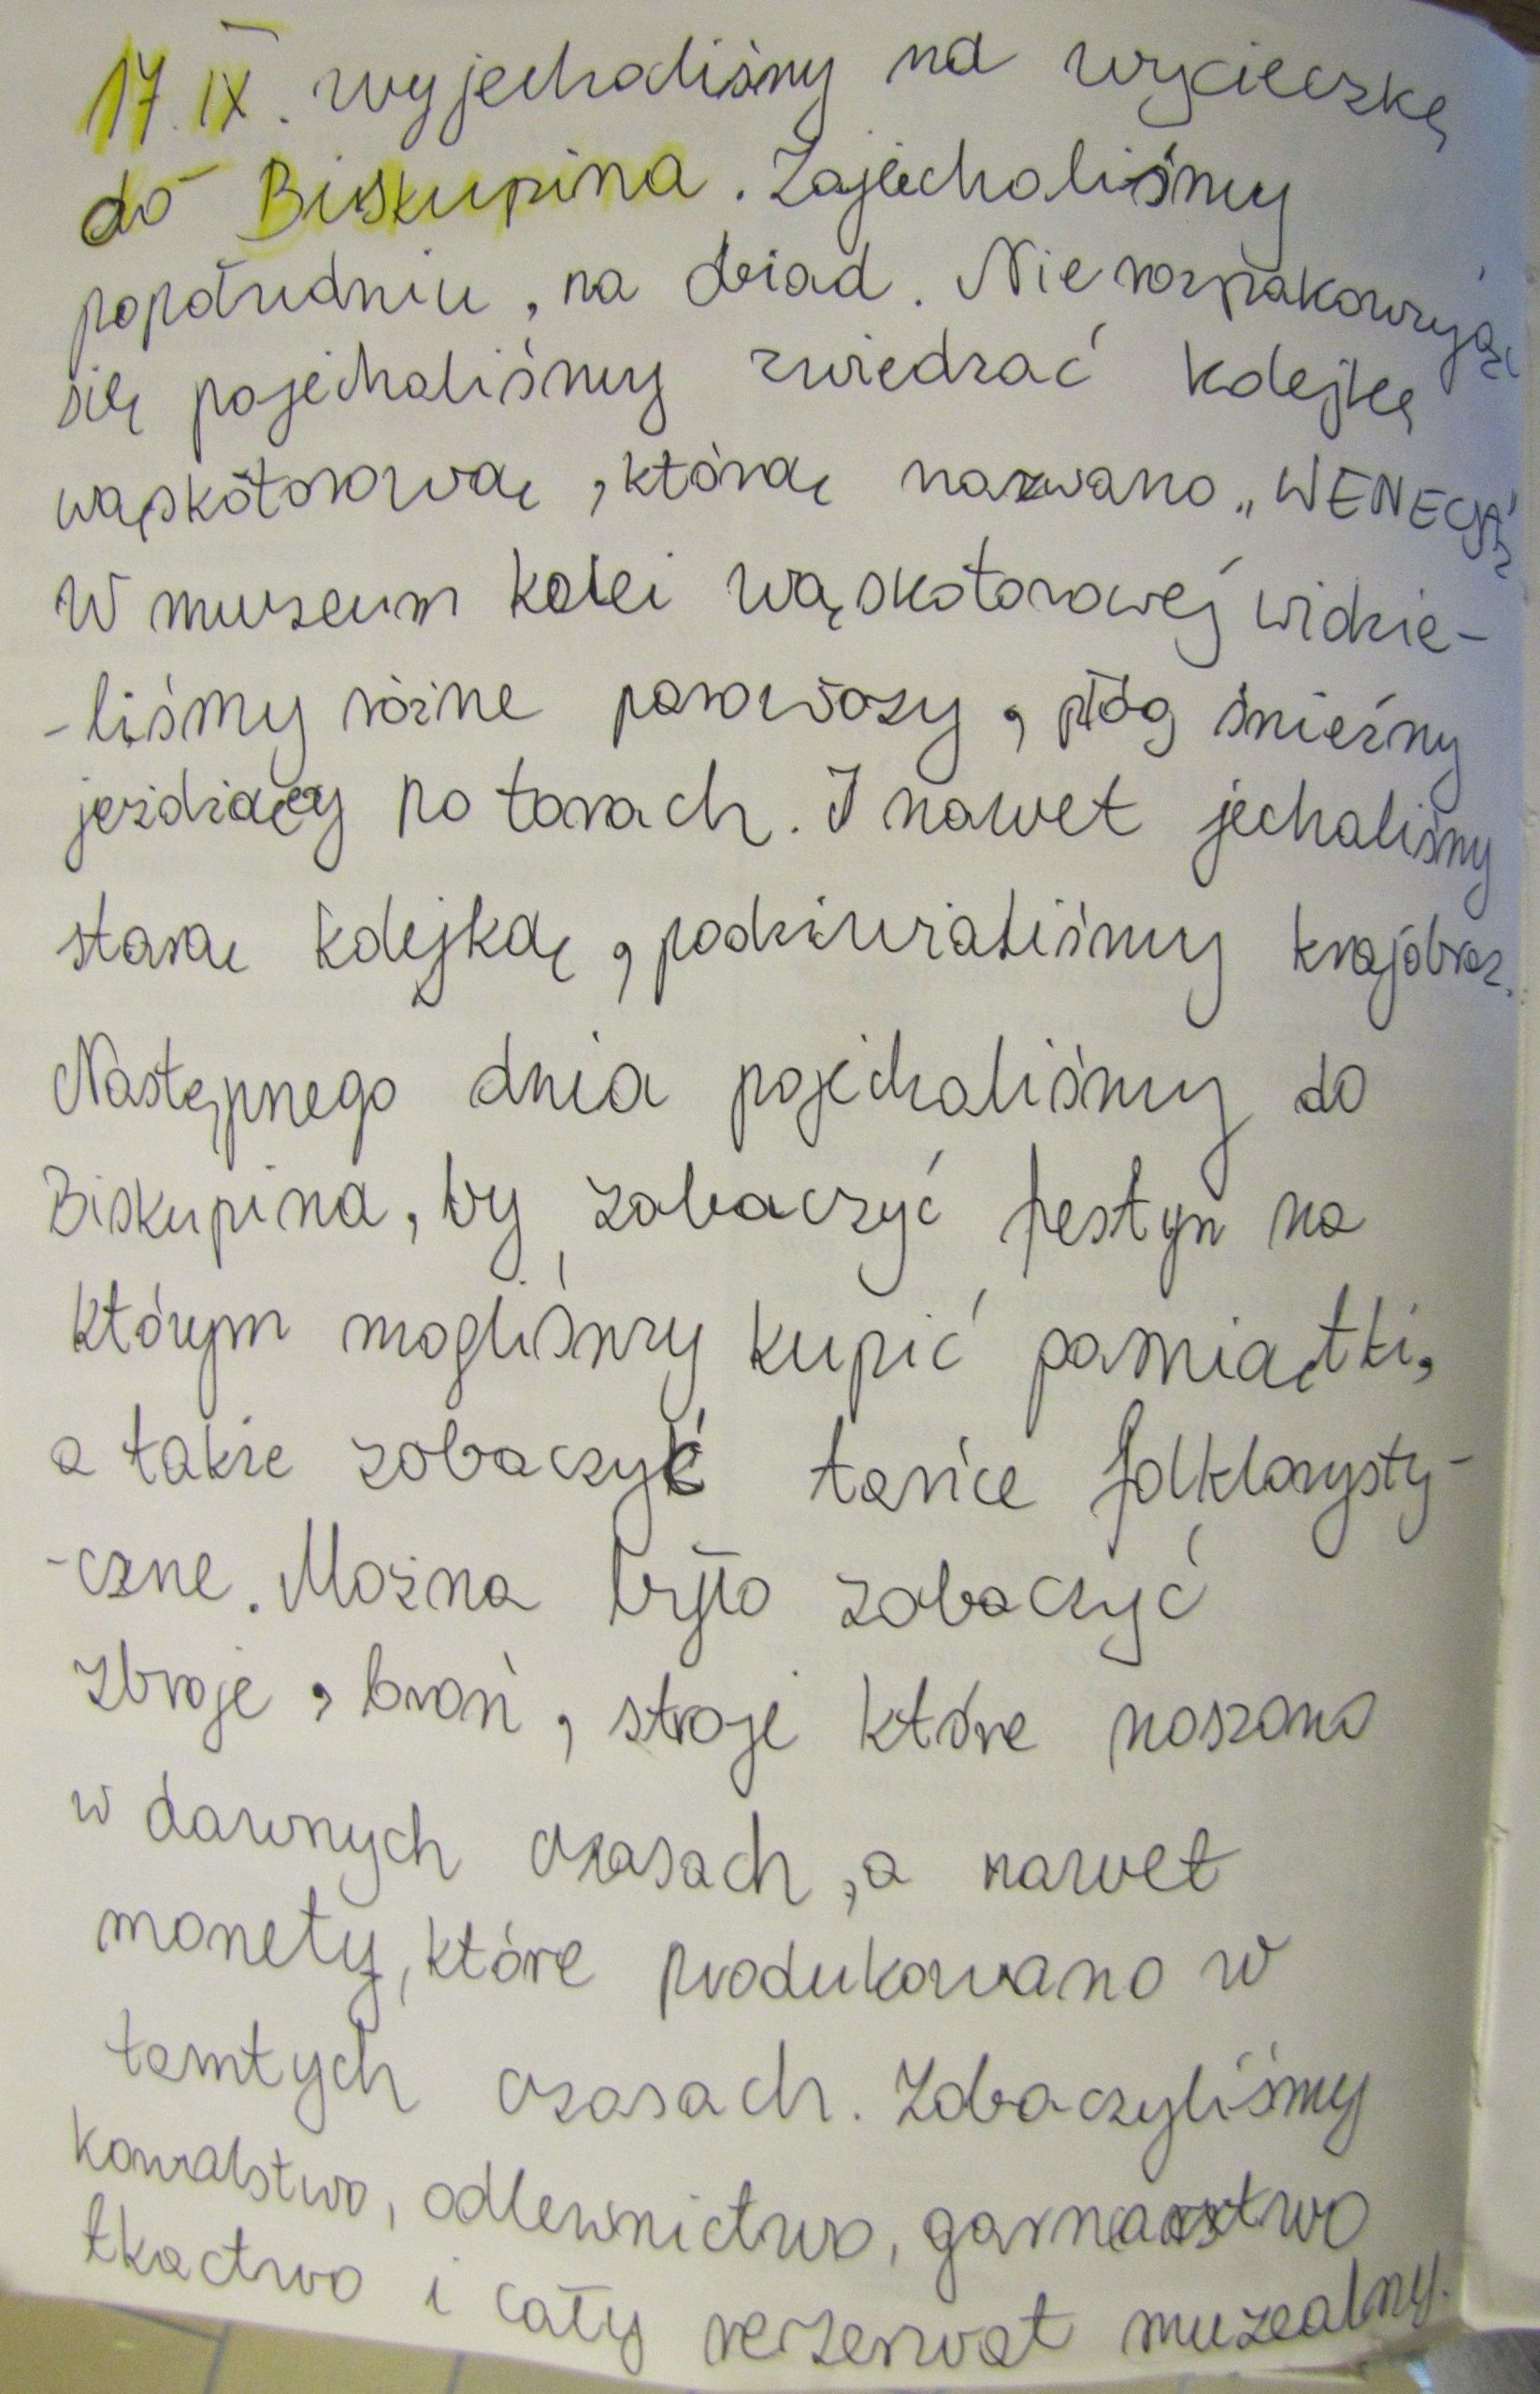 17. IX. wyjechaliśmy na wycieczkę
do Biskupina. Zajechaliśmy
popołudniu, na obiad. Nie rozpakowując
się pojechaliśmy zwiedzać kolejkę
wąskotorową, którą nazwano „WENECJĄ"
W muzeum kolei wąskotorowej widzie-
-liśmy różne parowozy, pług śnieżny
jeżdżący po torach. I nawet jechaliśmy
starą kolejką, podziwialiśmy krajobraz.
Następnego dnia pojechaliśmy do
Biskupina, by zobaczyć festyn na
którym mogliśmy kupić pamiątki,
a także zobaczyć tańce folklorysty-
-czne. Można było zobaczyć
zbroje, broń, stroje które noszono
w dawnych czasach, a nawet
monety, które produkowano w
tamtych czasach. Zobaczyliśmy
kowalstwo, odlewnictwo, garncarstwo
tkactwo i cały rezerwat muzealny.